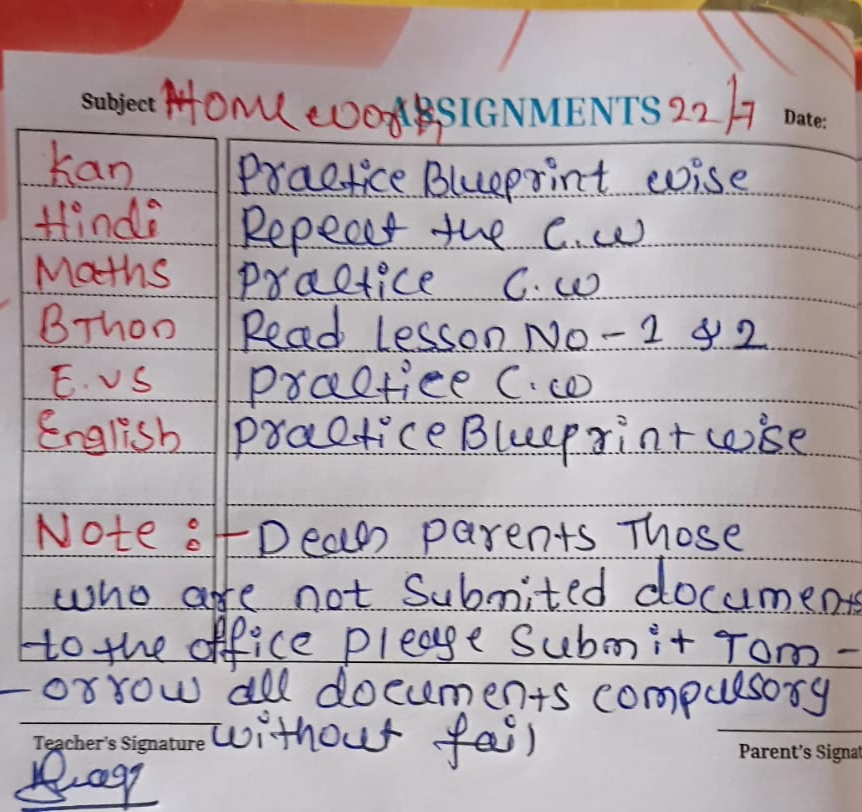 Subject Home work ASSIGNMENTS 22/7 Date:
Kan Practice Blueprint wise
Hindi Repeat the C.w
Maths Practice C.w
BThon Read Lesson No - 1 & 2
E.vs Practice C.w
English Practice Blueprint wise
Note :- Dear parents Those
who are not Submited documents
to the office Please Submit Tom -
- orrow all documents compulsory
without fail
Teacher's Signature Parent's Signat